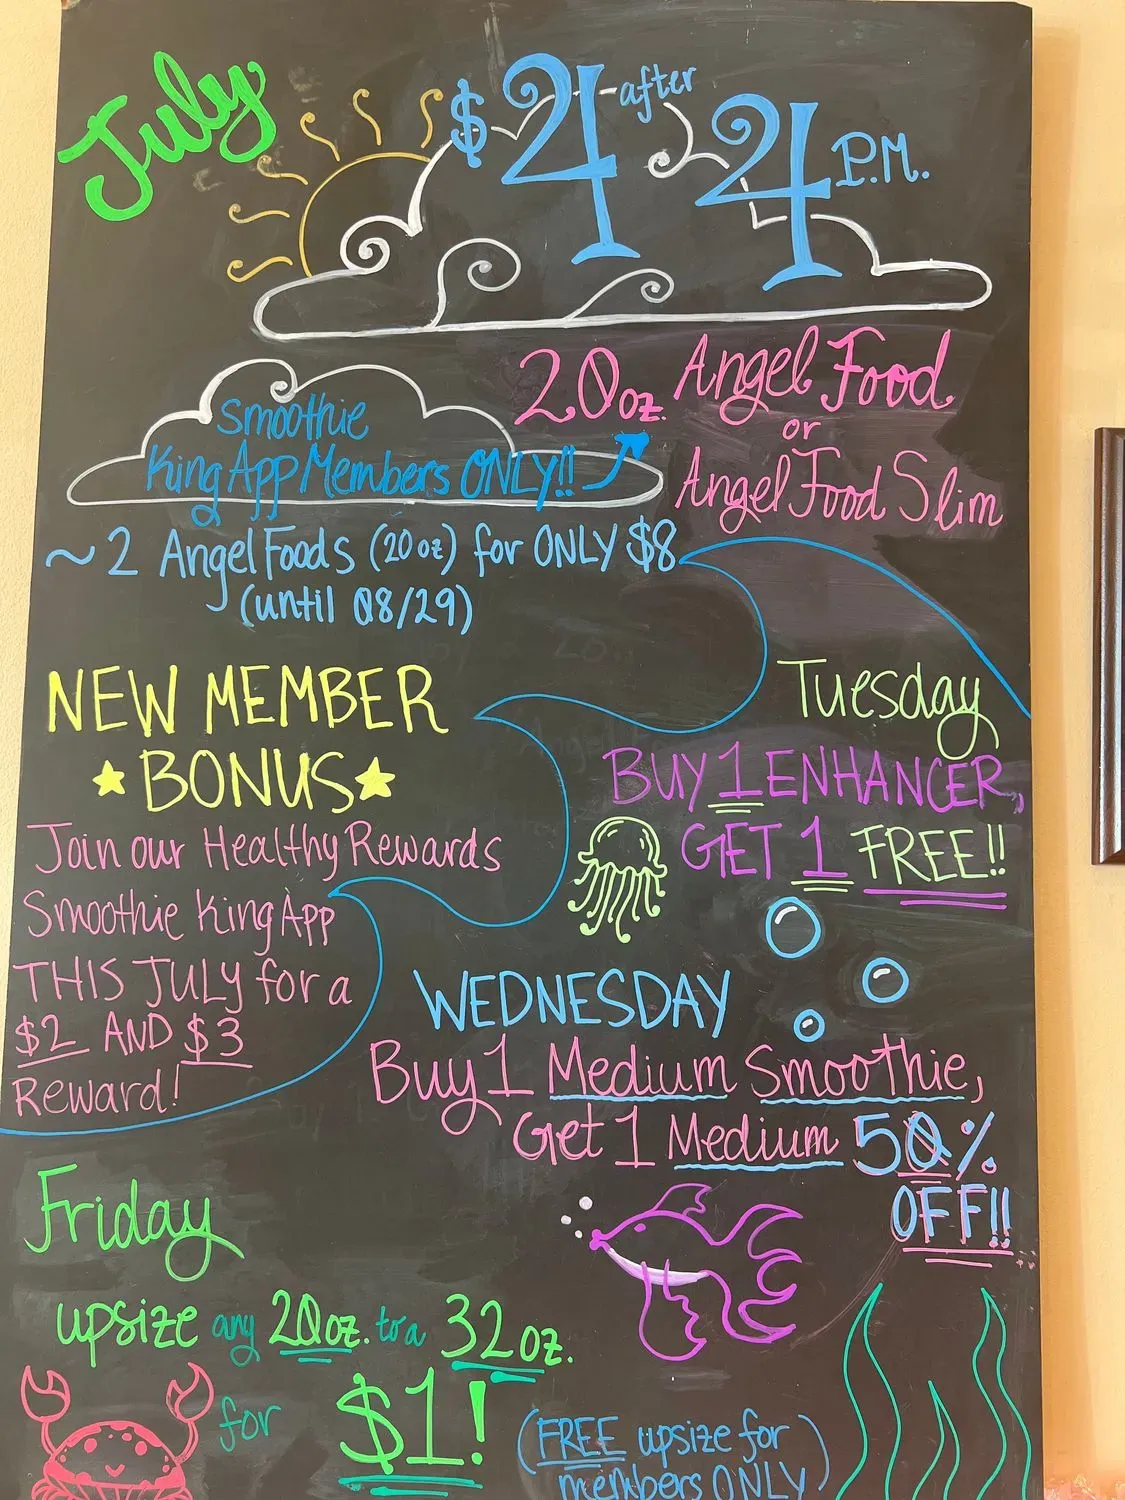 July
$4 after 4 P.M.
20oz. Angel Food
or
Angel Food Slim
Smoothie
King App Members ONLY!!
~ 2 Angel Foods (20oz) for ONLY $8
(until 08/29)
NEW MEMBER
BONUS
Join our Healthy Rewards
Smoothie King App
THIS JULY for a
$2 AND $3
Reward!
Tuesday
BUY 1 ENHANCER,
GET 1 FREE!!
WEDNESDAY
Buy 1 Medium Smoothie,
Get 1 Medium 50%
OFF!!
Friday
upsize any 20oz. to a 32oz.
for $1!
(FREE upsize for
members ONLY)